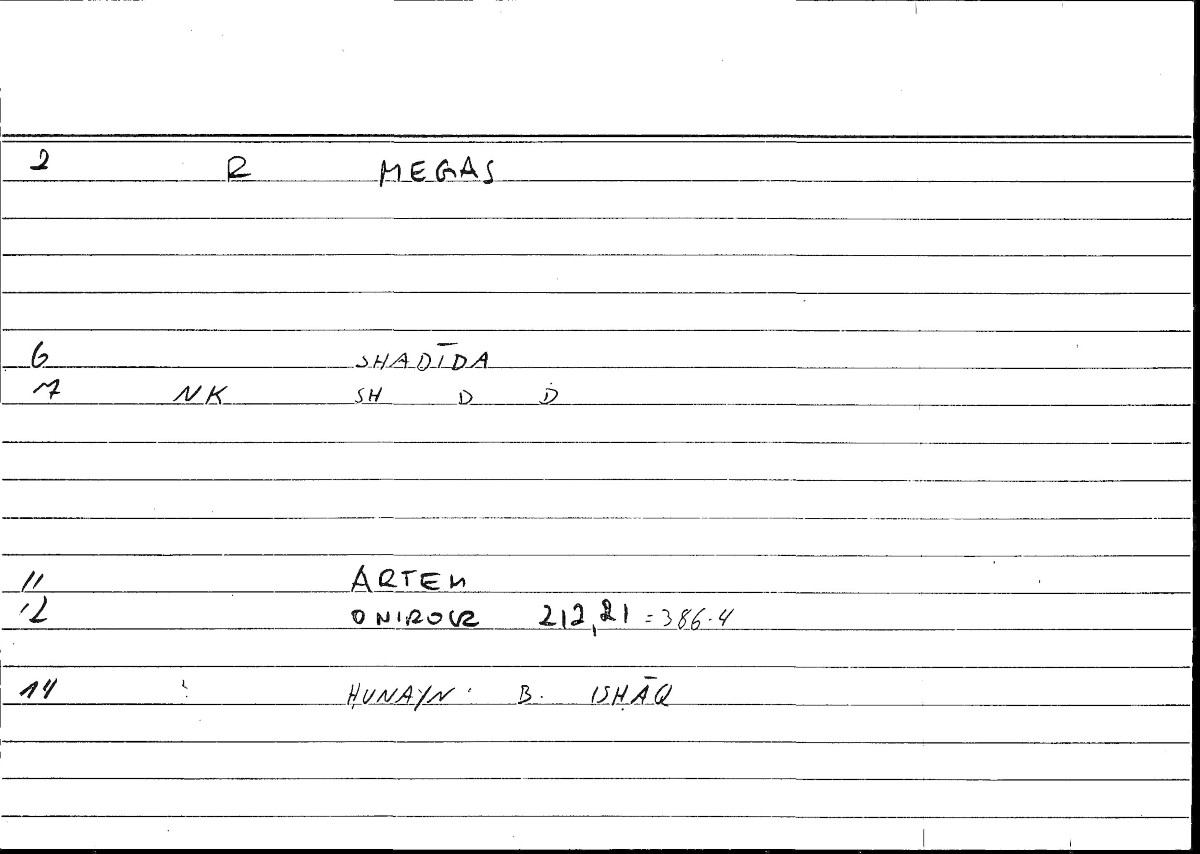 2 R MEGAS
6 SHADĪDA
7 NK SH D D
11 ARTEM
12 ONIROCR 212,21 = 386.4
14 ḤUNAYN B. ISḤĀQ